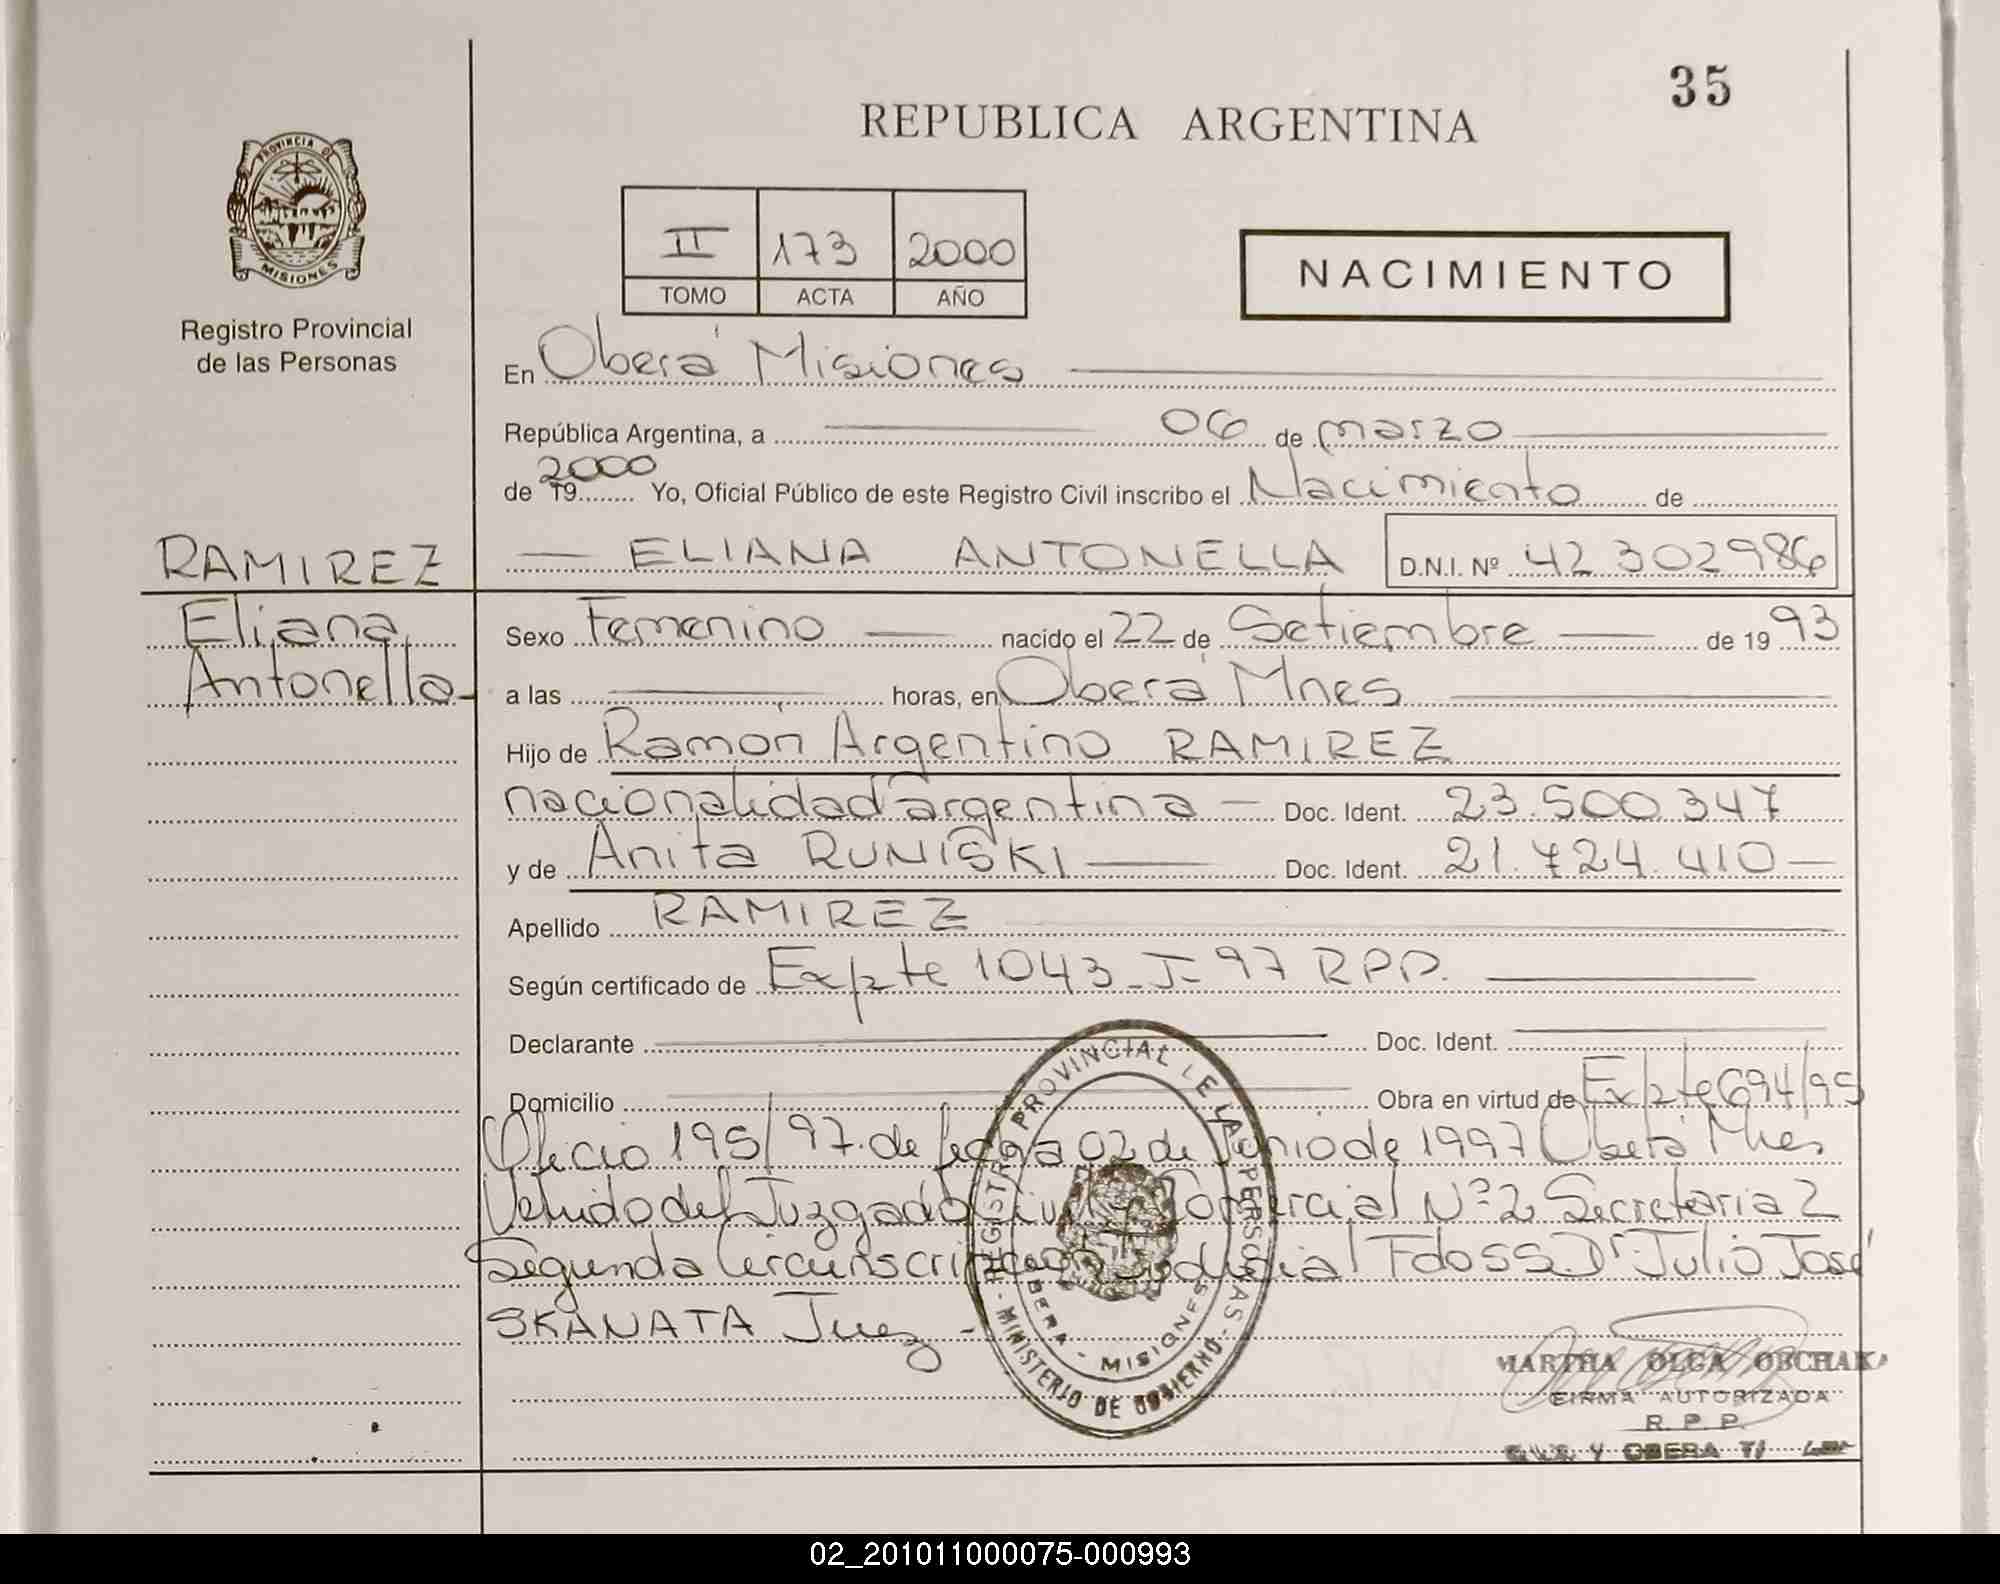 35
REPUBLICA ARGENTINA
PROVINCIA DE
MISIONES
Registro Provincial
de las Personas
II 173 2000
TOMO ACTA AÑO
NACIMIENTO
En Oberá Misiones
República Argentina, a 06 de marzo
2000
de 19 Yo, Oficial Público de este Registro Civil inscribo el Nacimiento de
RAMIREZ
Eliana
Antonella
ELIANA ANTONELLA D.N.I. Nº 42 302986
Sexo Femenino nacido el 22 de Setiembre de 1993
a las horas, en Oberá Mnes
Hijo de Ramón Argentino RAMIREZ
nacionalidad argentina Doc. Ident. 23.500.347
y de Anita RUNISKI Doc. Ident. 21.724.410
Apellido RAMIREZ
Según certificado de Expte 1043-J-97 RPP.
Declarante Doc. Ident.
Domicilio Obra en virtud de Expte 694/95
Oficio 195/97. de fecha 02 de Junio de 1997 Oberá Mnes
del Juzgado Civil y Comercial Nº 2 Secretaria 2
Segunda Circunscripcion Judicial Fdo SS Dr. Julio José
SKANATA Juez -
REGISTRO PROVINCIAL DE LAS PERSONAS
- MINISTERIO DE GOBIERNO -
OBERA - MISIONES
MARTHA OLGA OBCHAK
FIRMA AUTORIZADA
R. P. P.
Y OBERA
02_201011000075-000993